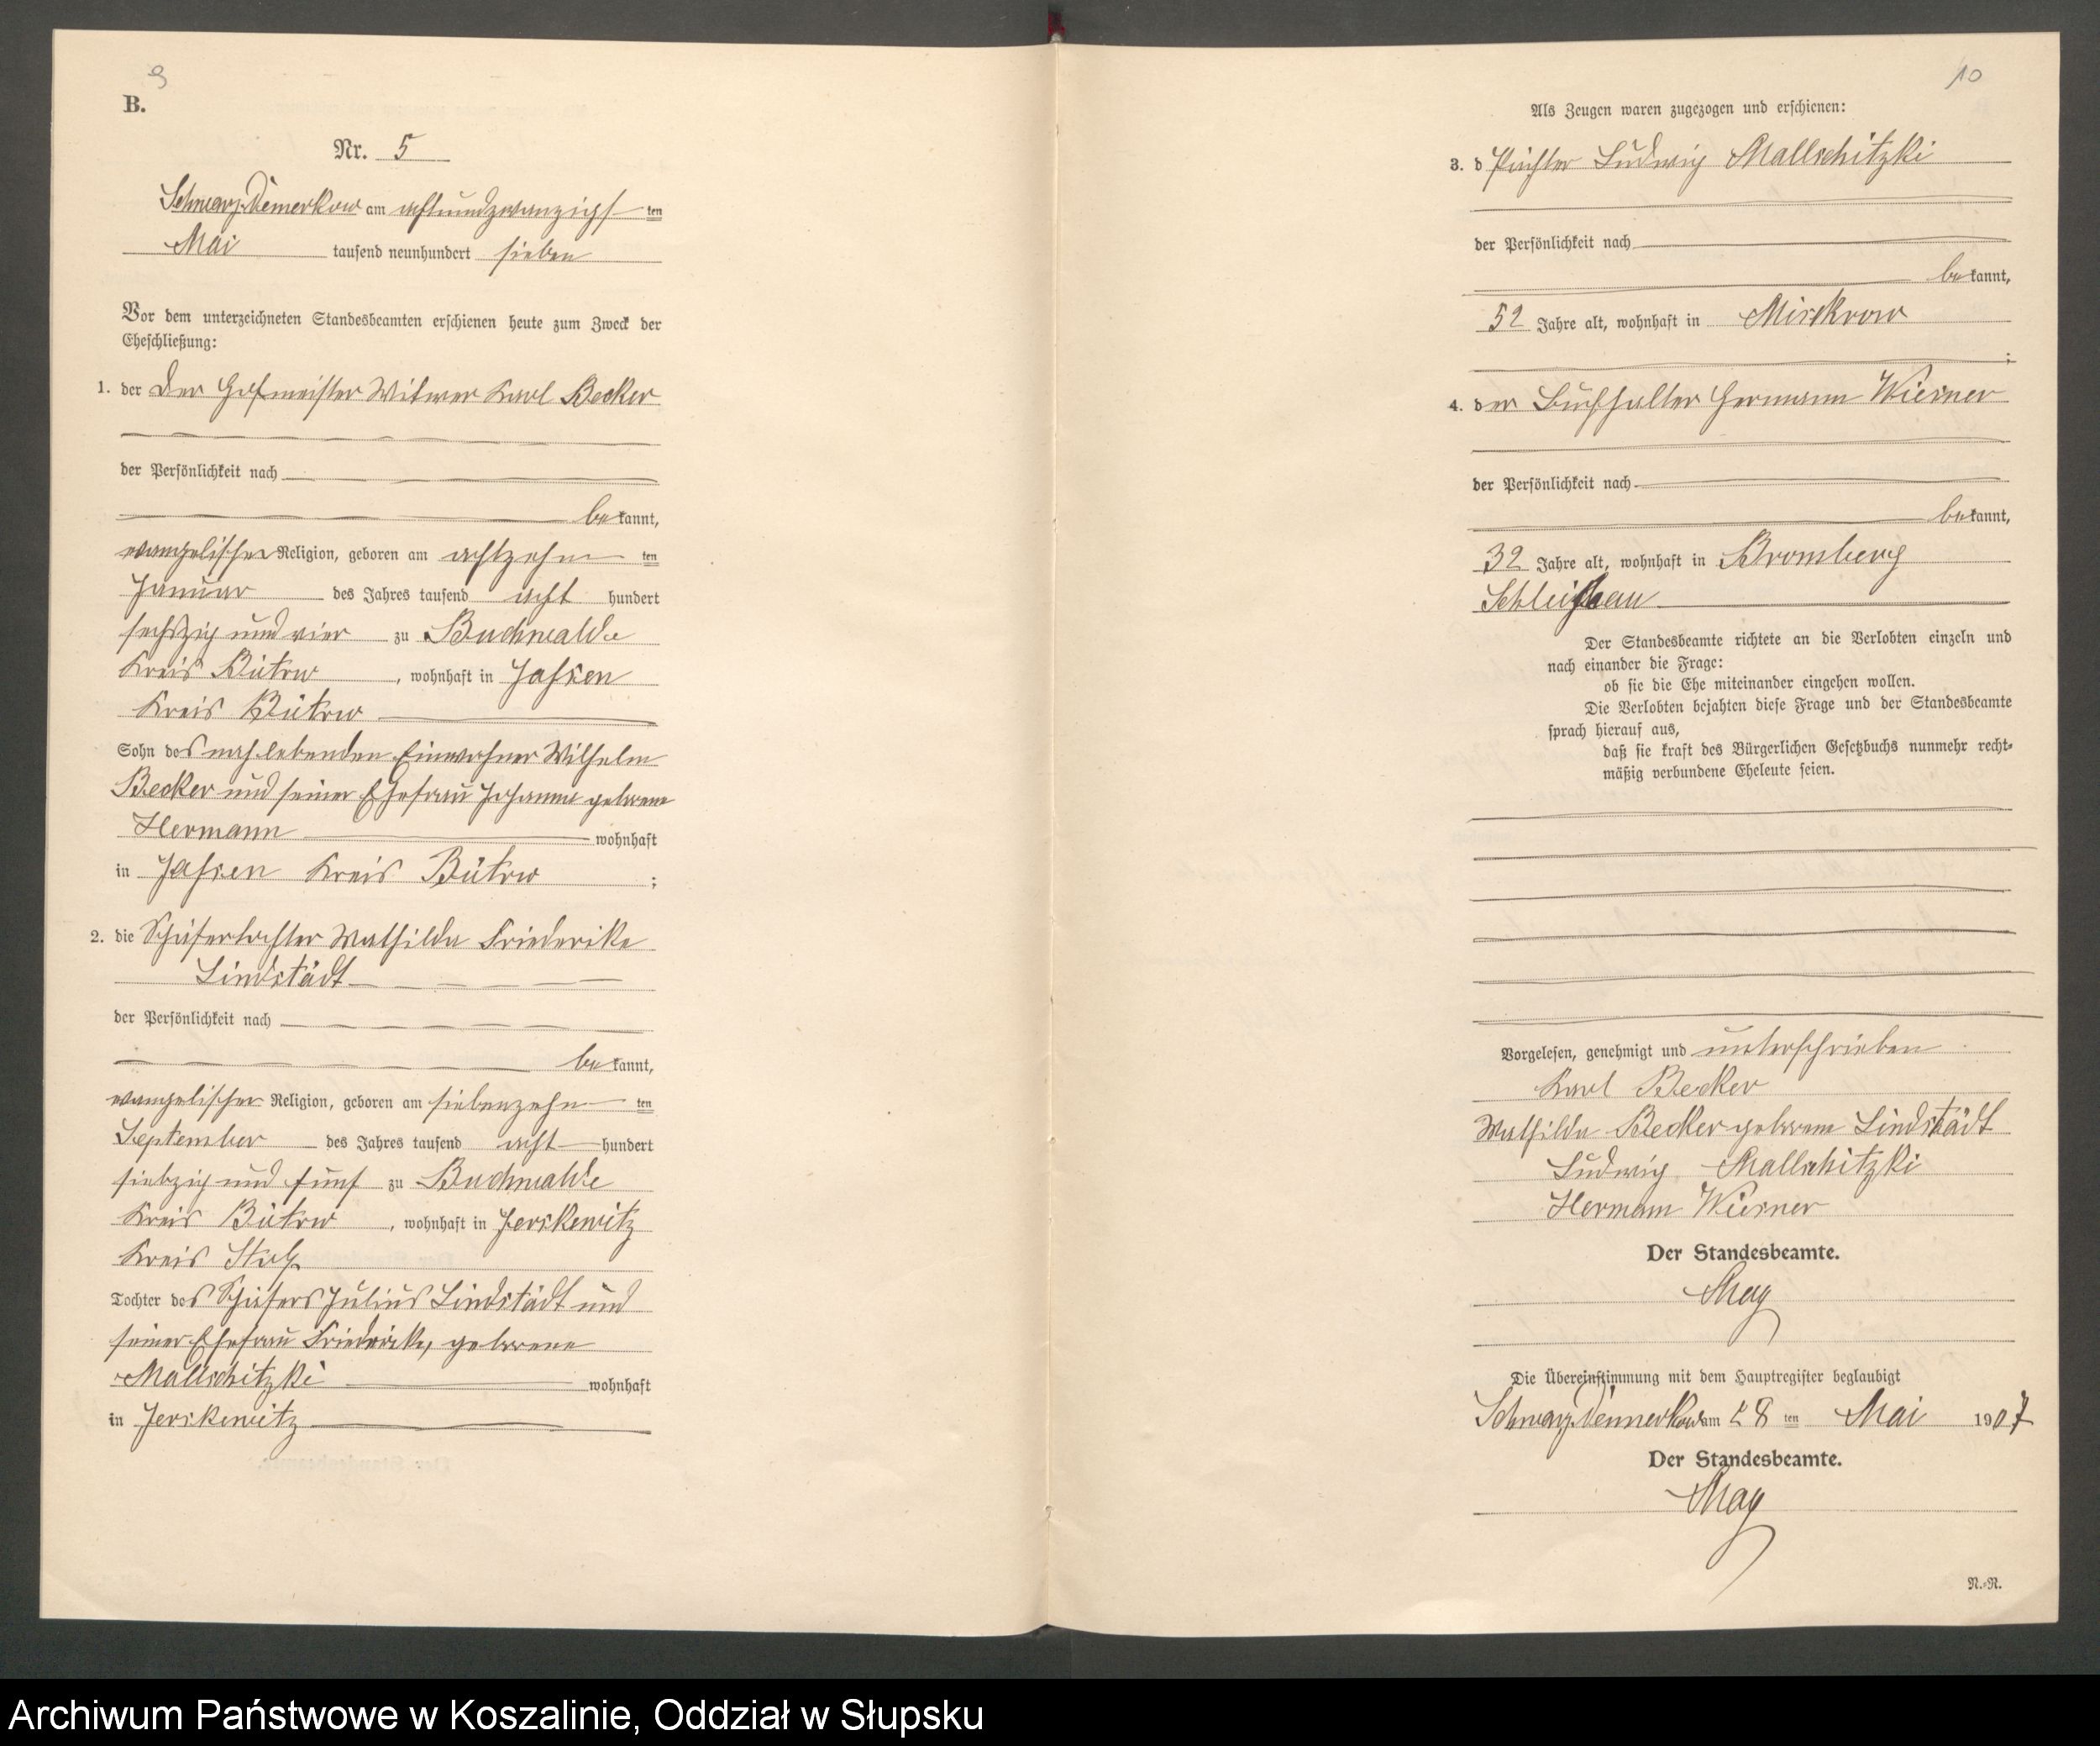 9
B.
Nr. 5
Schwarz Damerkow am achtundzwanzigsten
Mai tausend neunhundert sieben
Vor dem unterzeichneten Standesbeamten erschienen heute zum Zweck der
Eheschließung:
1. der der Hofmeister Witwer Karl Becker
der Persönlichkeit nach
bekannt,
evangelischer Religion, geboren am achtzehnten
Januar des Jahres tausend acht hundert
sechszig und vier zu Buchwalde
Kreis Bütow, wohnhaft in Jassen
Kreis Bütow
Sohn des noch lebenden Einwohner Wilhelm
Becker und seiner Ehefrau Johanne geborene
Hermann wohnhaft
in Jassen Kreis Bütow;
2. die Schäfertochter Mathilde Friederike
Lindstädt
der Persönlichkeit nach
bekannt,
evangelischer Religion, geboren am siebenzehnten
September des Jahres tausend acht hundert
siebzig und fünf zu Buchwalde
Kreis Bütow, wohnhaft in Jerskewitz
Kreis Stolp
Tochter des Schäfers Julius Lindstädt und
seiner Ehefrau Friederike, geborene
Mallschitzki wohnhaft
in Jerskewitz
10
Als Zeugen waren zugezogen und erschienen:
3. d Pächter Ludwig Mallschitzki
der Persönlichkeit nach
bekannt,
52 Jahre alt, wohnhaft in Mickrow
;
4. der Buchhalter Hermann Wiesner
der Persönlichkeit nach
bekannt,
32 Jahre alt, wohnhaft in Bromberg
Der Standesbeamte richtete an die Verlobten einzeln und
nach einander die Frage:
ob sie die Ehe miteinander eingehen wollen.
Die Verlobten bejahten diese Frage und der Standesbeamte
sprach hierauf aus,
daß sie kraft des Bürgerlichen Gesetzbuchs nunmehr recht-
mäßig verbundene Eheleute seien.
Vorgelesen, genehmigt und unterschrieben
Karl Becker
Mathilde Becker geborene Lindstädt
Ludwig Mallschitzki
Hermann Wiesner
Der Standesbeamte.
May
Die Übereinstimmung mit dem Hauptregister beglaubigt
Schwarz Damerkow am 28 ten Mai 1907
Der Standesbeamte.
May
N.-N.
Archiwum Państwowe w Koszalinie, Oddział w Słupsku